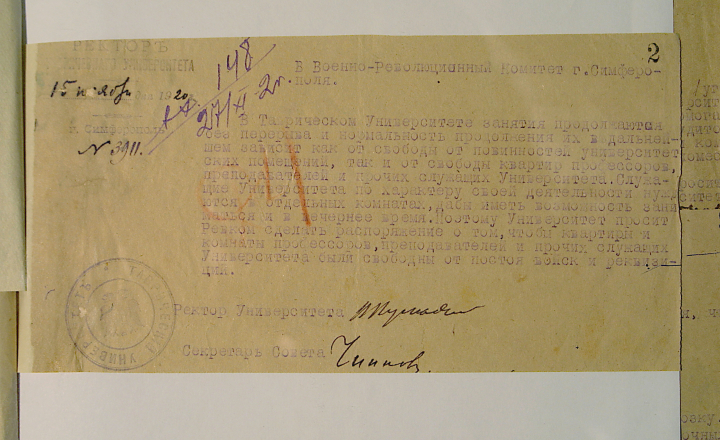 РЕКТОРЪ
УНИВЕРСИТЕТА
15 ноября 1920 г.
г. Симферополь
№ 3911.
148
27/XI 20 г.
2
В Военно-Революционный Комитет г.Симферо-
поля.
В Таврическом Университете занятия продолжаются
без перерыва и нормальность продолжения их в дальней-
шем зависит как от свободы от повинностей университет
ских помещений, так и от свободы квартир профессоров,
преподавателей и прочих служащих Университета.Служа-
щие Университета по характеру своей деятельности нужда
ются в отдельных комнатах,дабы иметь возможность зани
маться и в вечернее время.Поэтому Университет просит
Ревком сделать распоряжение о том,чтобы квартиры и
комнаты профессоров,преподавателей и прочих служащих
Университета были свободны от постоя войск и реквизи-
ций.
Ректор Университета
Секретарь Совета